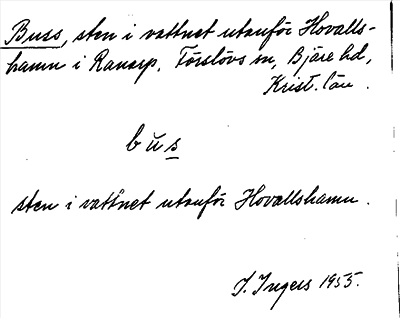 Buss, sten i vattnet utanför Hovalls-
hamn i Ranarp, Förslövs sn, Bjäre hd,
Krist. län.
bŭs
sten i vattnet utanför Hovallshamn.
I. Ingers 1955.